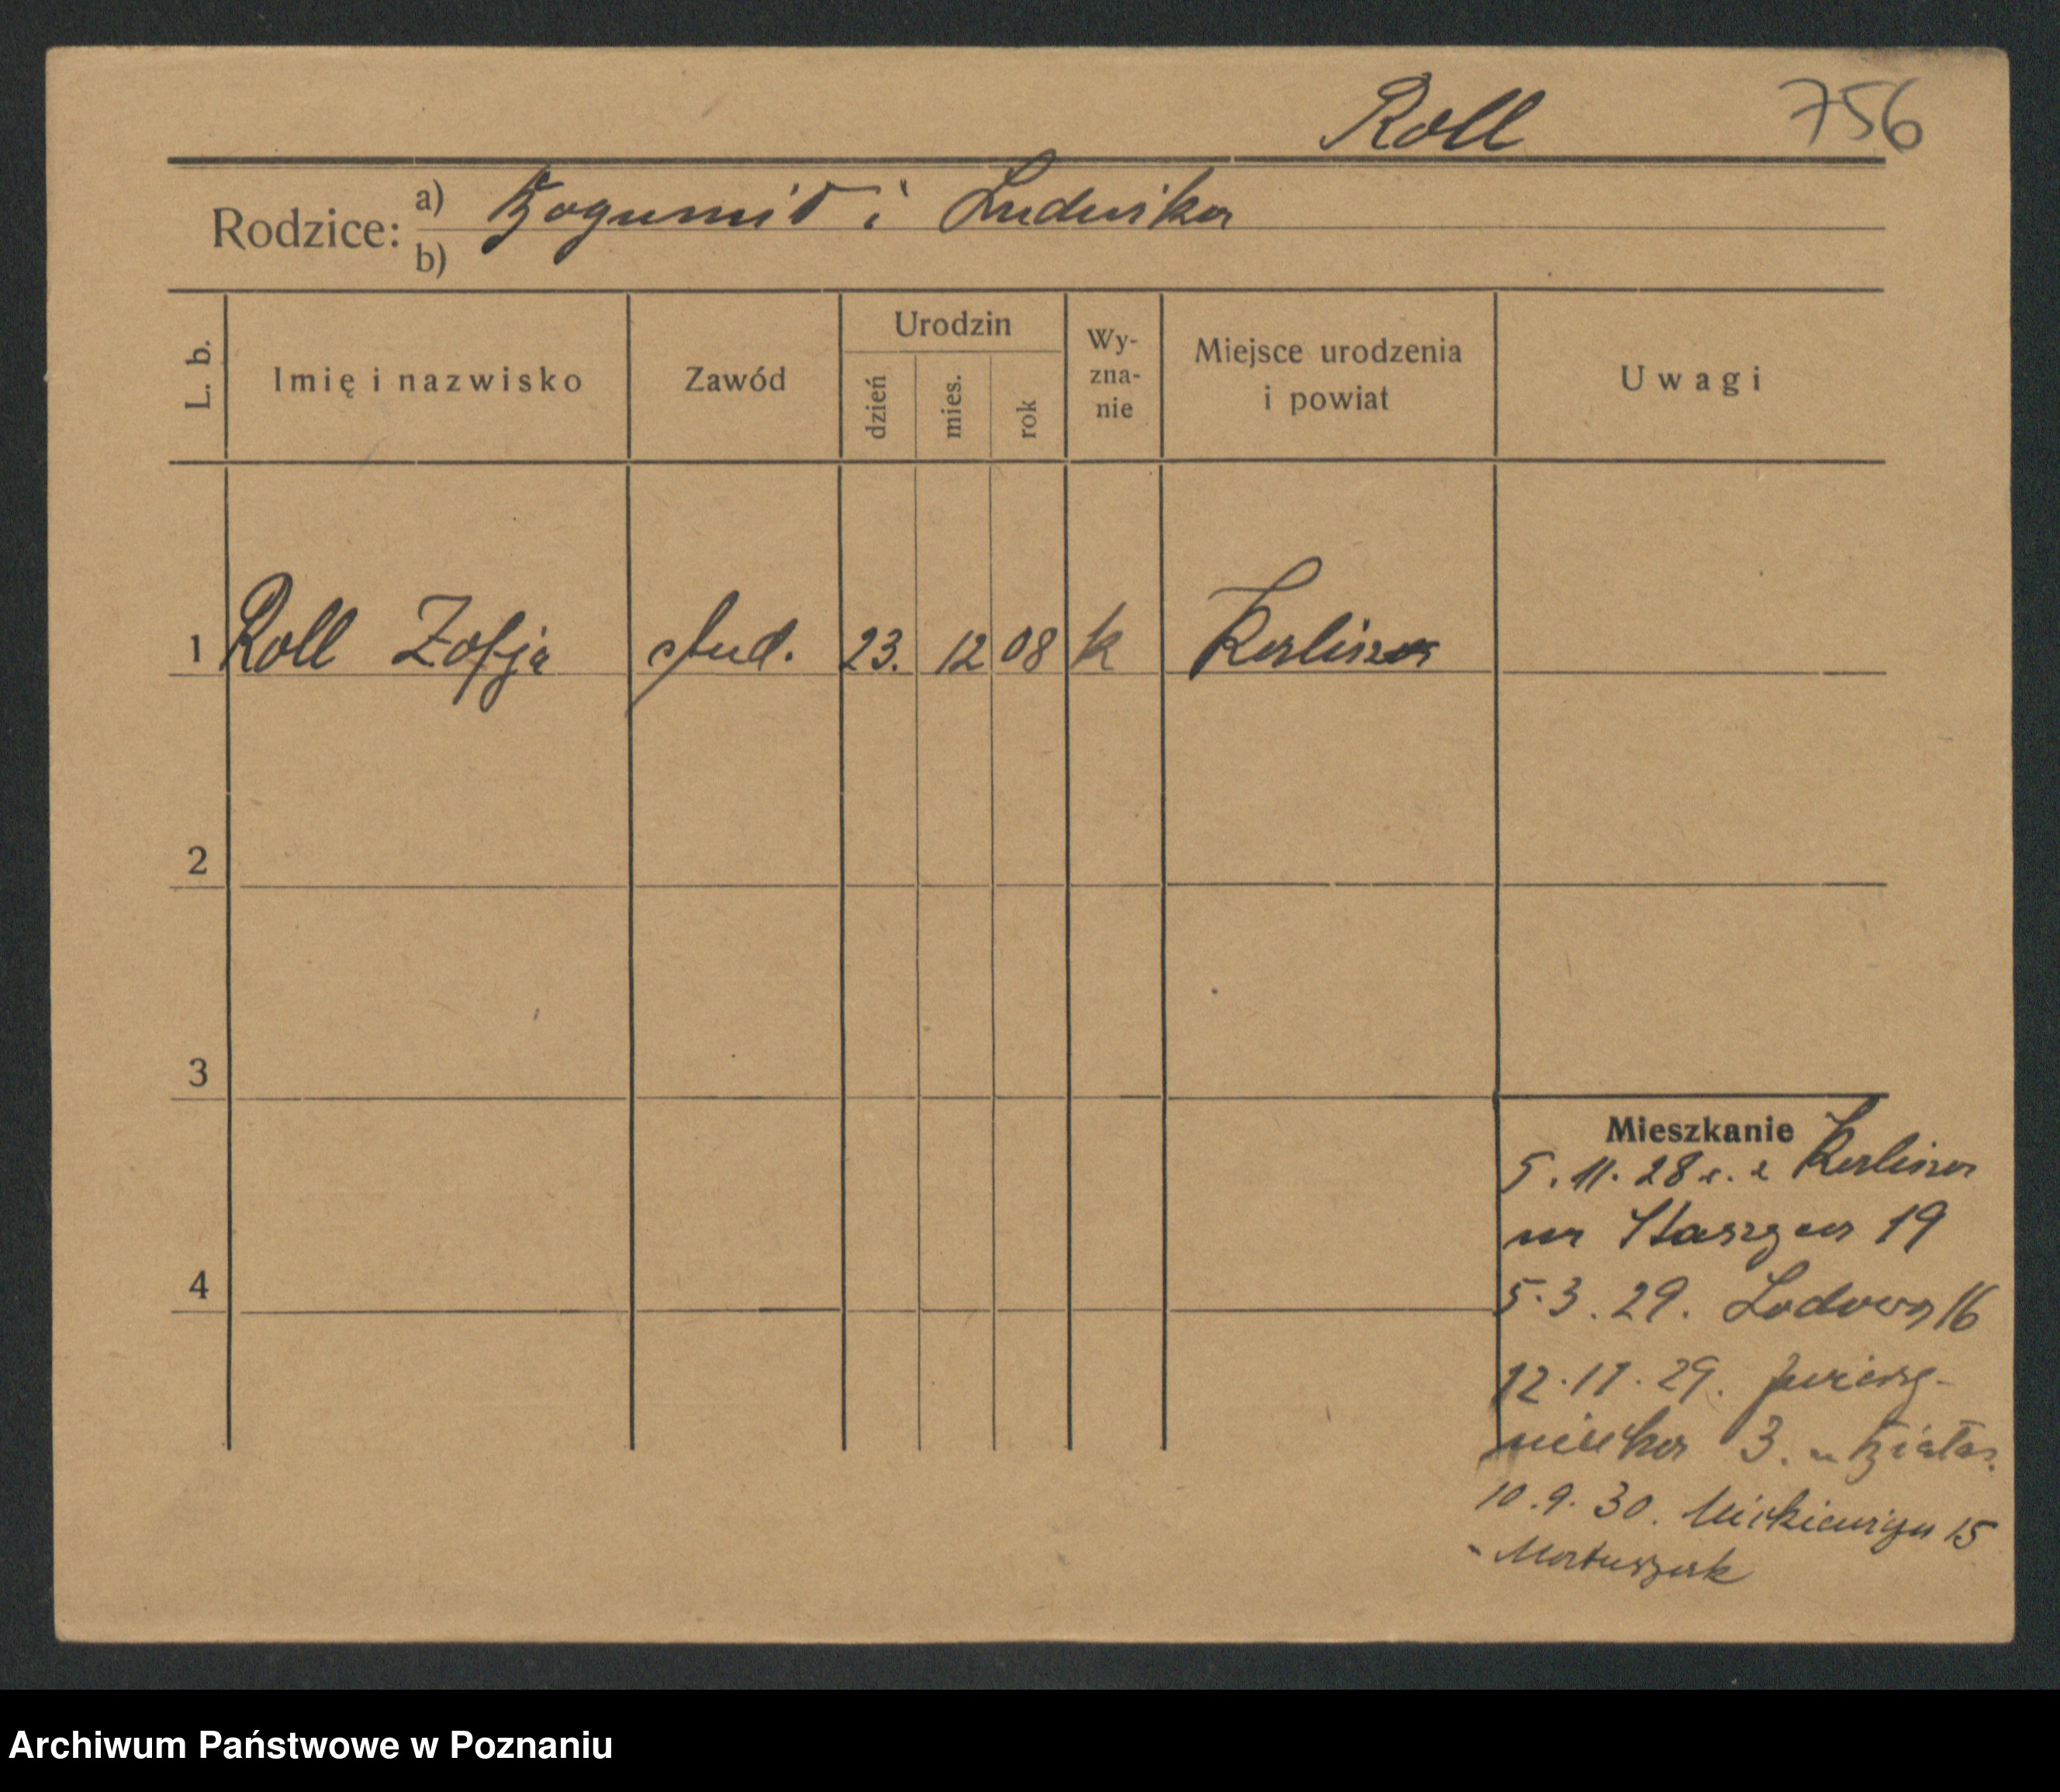 Roll 756
Rodzice: a) Bogumił i Ludwika
b)
L. b. Imię i nazwisko Zawód Urodzin dzień mies. rok Wy-zna-nie Miejsce urodzenia i powiat Uwagi
1 Roll Zofja stud. 23. 12 08 k Kalisza
2
3
4
Mieszkanie
5. 11. 28 r. z Kalisza
na Staszyca 19
5. 3. 29. Lodowa 16
12. 11. 29. Zwierzy-
niecka 3.
10. 9. 30. Mickiewicza 15
Archiwum Państwowe w Poznaniu